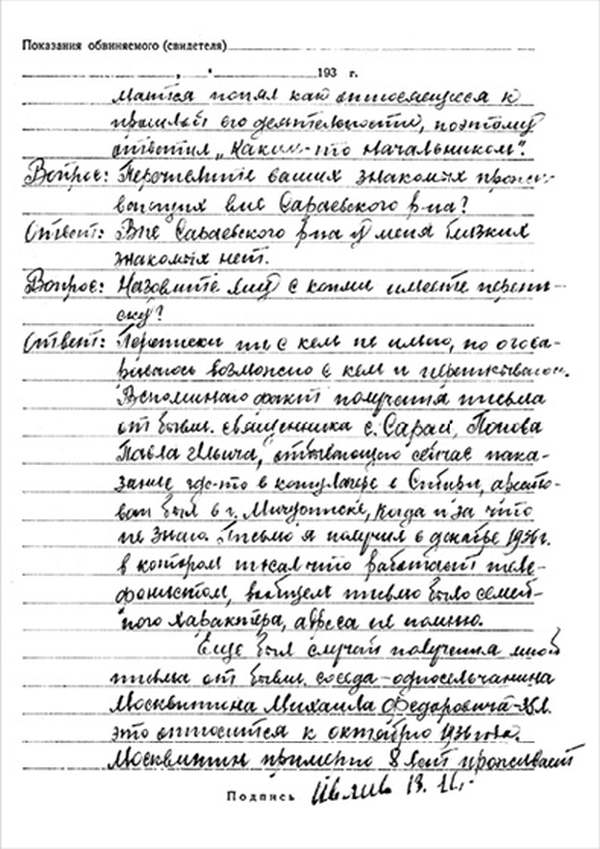 Показания обвиняемого (свидетеля)
193 г.
понял как относящееся к
прошлой его деятельности, поэтому
ответил „каким-то начальником".
Вопрос: Перечислите ваших знакомых прожи-
вающих вне Сараевского р-на?
Ответ: Вне Сараевского р-на у меня близких
знакомых нет.
Вопрос: Назовите лиц с коими имеете перепи-
ску?
Ответ: Переписки ни с кем не имею, но огова-
риваюсь возможно с кем и переписывался.
Вспоминаю факт получения письма
от бывш. священника с. Сараи, Попова
Павла Ильича, отбывающего сейчас нака-
зание где-то в концлагере в Сибири, аресто-
ван был в г. Мичуринске, когда и за что
не знаю. Письмо я получил в декабре 1936 г.
в котором писал что работает теле-
фонистом, вобщем письмо было семей-
ного характера, адреса не помню.
Еще был случай получения мной
письма от бывш. соседа-односельчанина
Москвитина Михаила Федоровича
это относится к октябрю 1936 года.
Москвитин примерно 8 лет проживает
Подпись